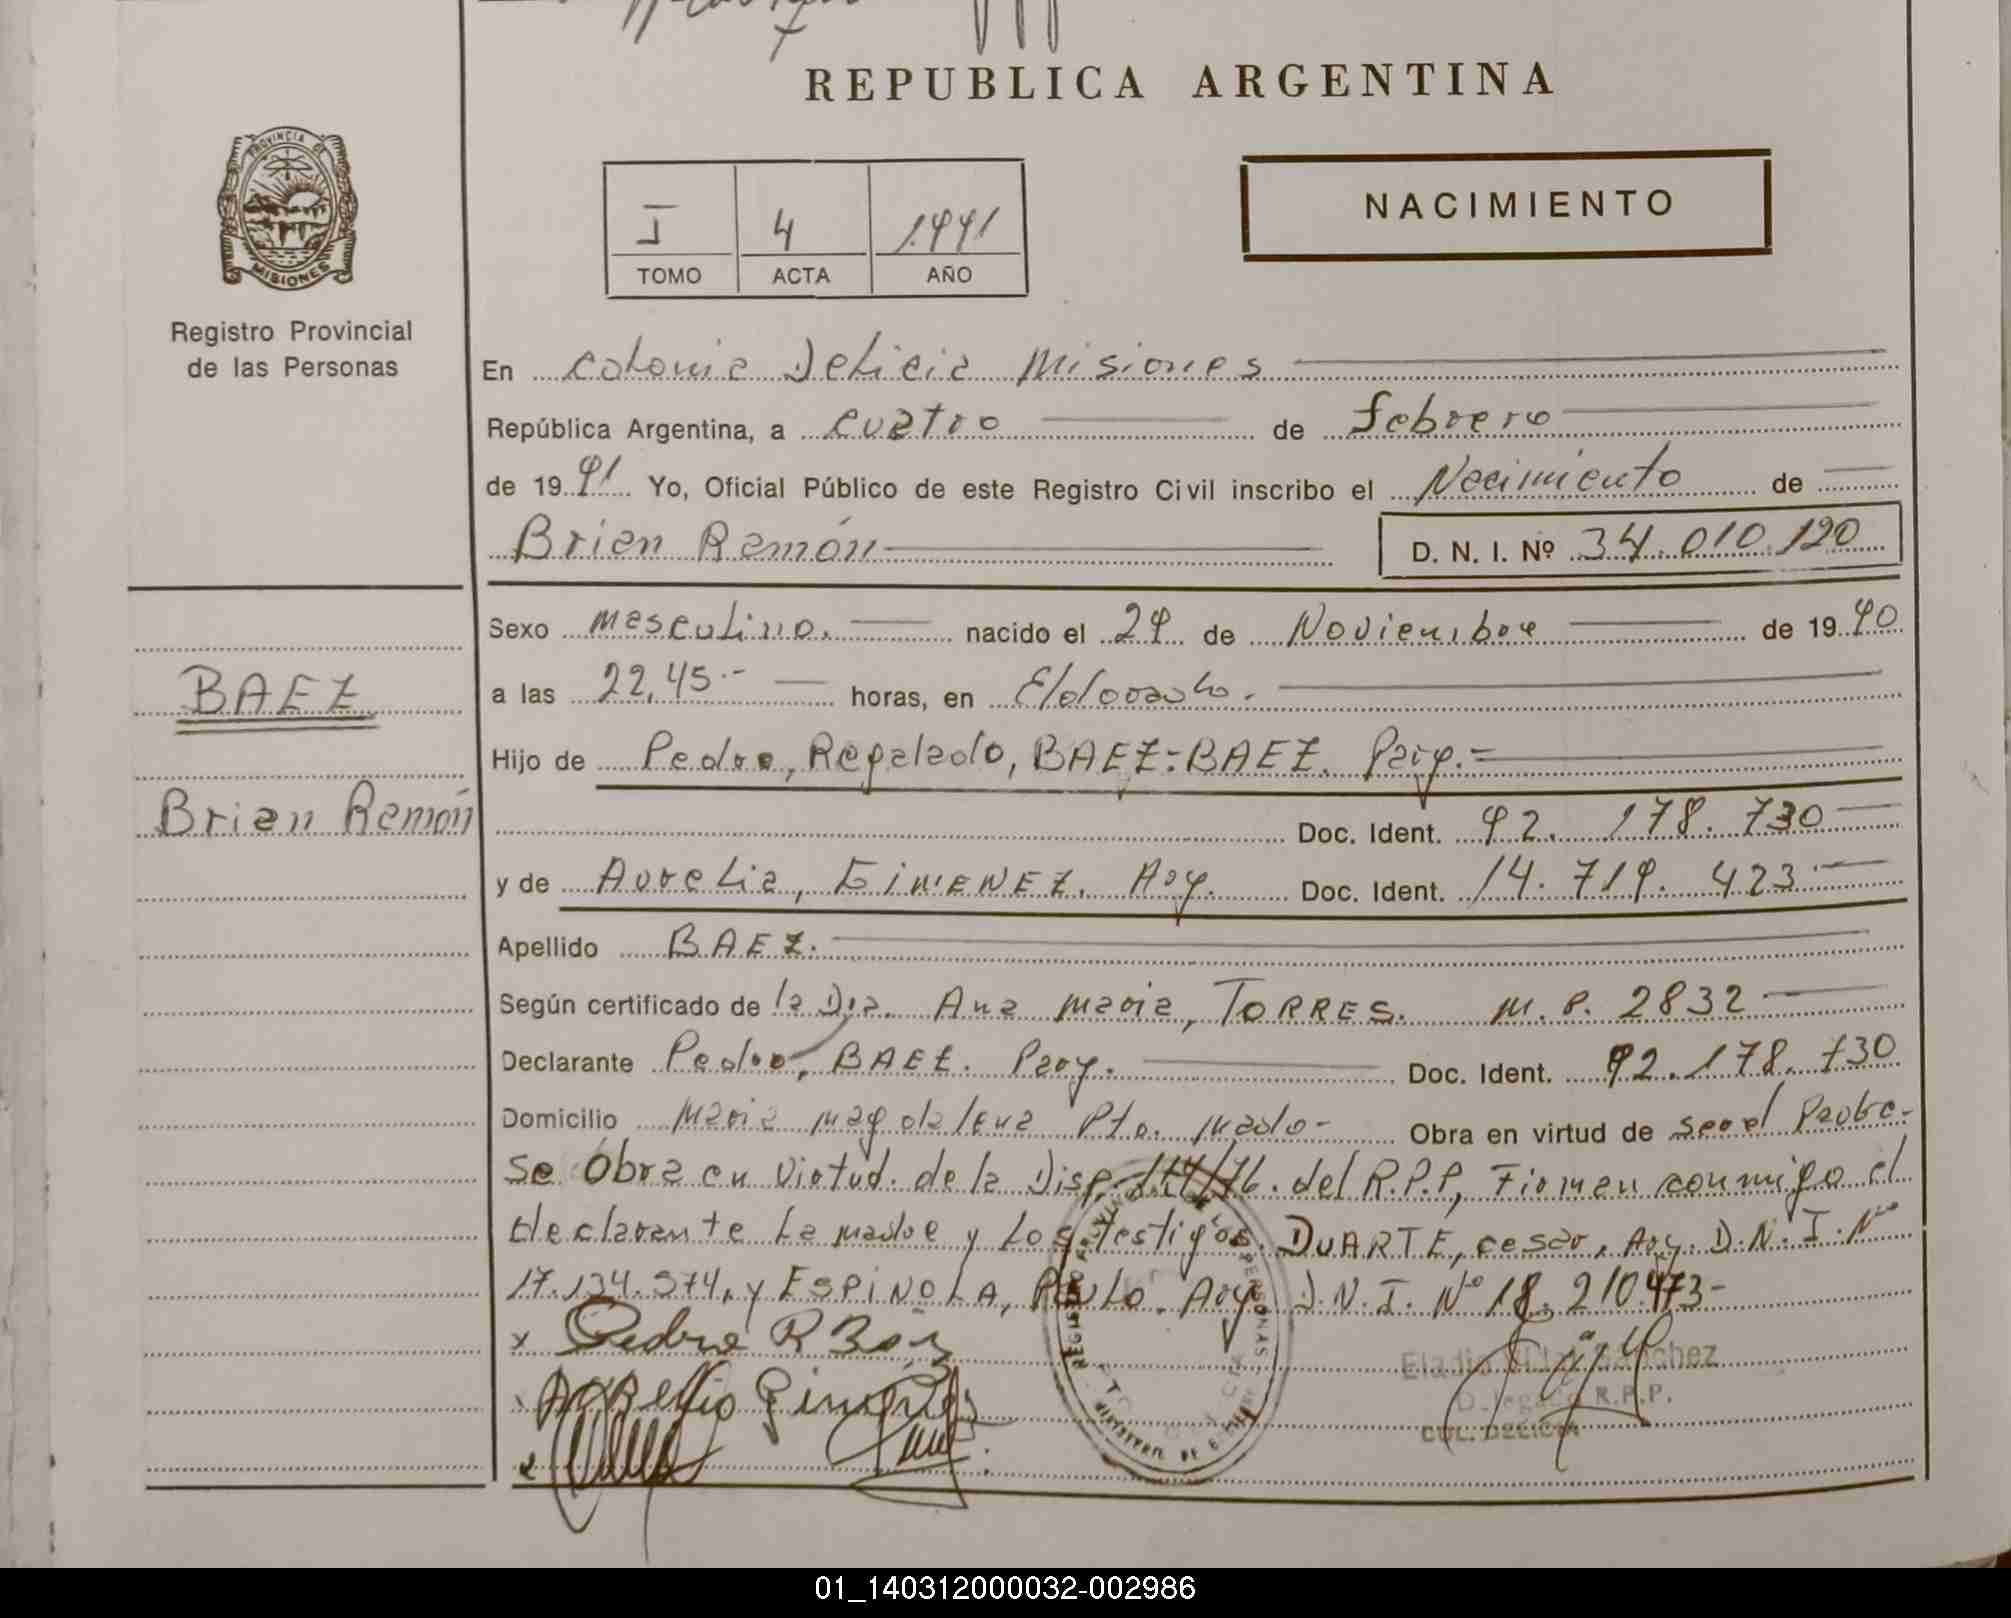 REPUBLICA ARGENTINA
PROVINCIA DE
MISIONES
Registro Provincial
de las Personas
I 4 1991
TOMO ACTA AÑO
NACIMIENTO
En Colonia Delicia Misiones
República Argentina, a cuatro de febrero
de 19 91 Yo, Oficial Público de este Registro Civil inscribo el Nacimiento de
Brian Ramón D. N. I. Nº 34.010.120
Sexo masculino. nacido el 29 de Noviembre de 19 90
a las 22,45.- horas, en Eldorado.
Hijo de Pedro, Regalado, BAEZ=BAEZ. Parg.=
Doc. Ident. 92. 178. 730
y de Aurelia, GIMENEZ. Arg. Doc. Ident. 14. 719. 423
Apellido BAEZ.
Según certificado de la Dra. Ana Maria, TORRES. M. P. 2832
Declarante Pedro, BAEZ. Parg. Doc. Ident. 92.178.730
Domicilio Maria Magdalena Pto. Mado- Obra en virtud de ser el Padre-
Se Obra en Virtud de la Disp. /76. del R.P.P, Firman conmigo el
declarante La madre y Los testigos. DUARTE, cesar, Arg. D.N.I.Nº
17.134.574, y ESPINOLA, Arg. D.N.I. Nº 18.210.473-
x Pedro R Baez
Sanchez
R.P.P.
COL. DELICIA
BAEZ
Brian Ramón
01_140312000032-002986